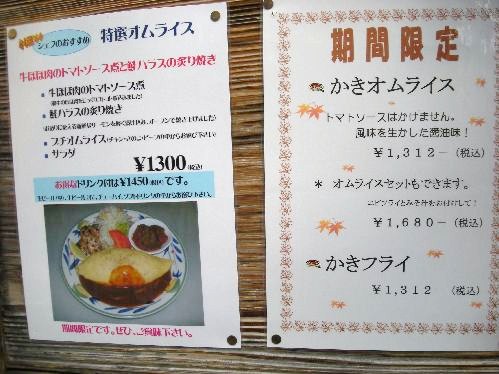 シェフのおすすめ 特選オムライス
牛ほほ肉のトマトソース煮と鮭ハラスの炙り焼き
■ 牛ほほ肉のトマトソース煮
■ 鮭ハラスの炙り焼き
■ プチオムライス
■ サラダ
¥1300(税込)
お得なドリンク付は¥1450(税込)です。
期間限定です。ぜひ、ご賞味下さい。
期間限定
かきオムライス
トマトソースはかけません。
風味を生かした醤油味！
￥１,３１２－（税込）
＊ オムライスセットもできます。
エビフライとみそ汁をお付けして！
￥１,６８０－（税込）
かきフライ
￥１,３１２ （税込）